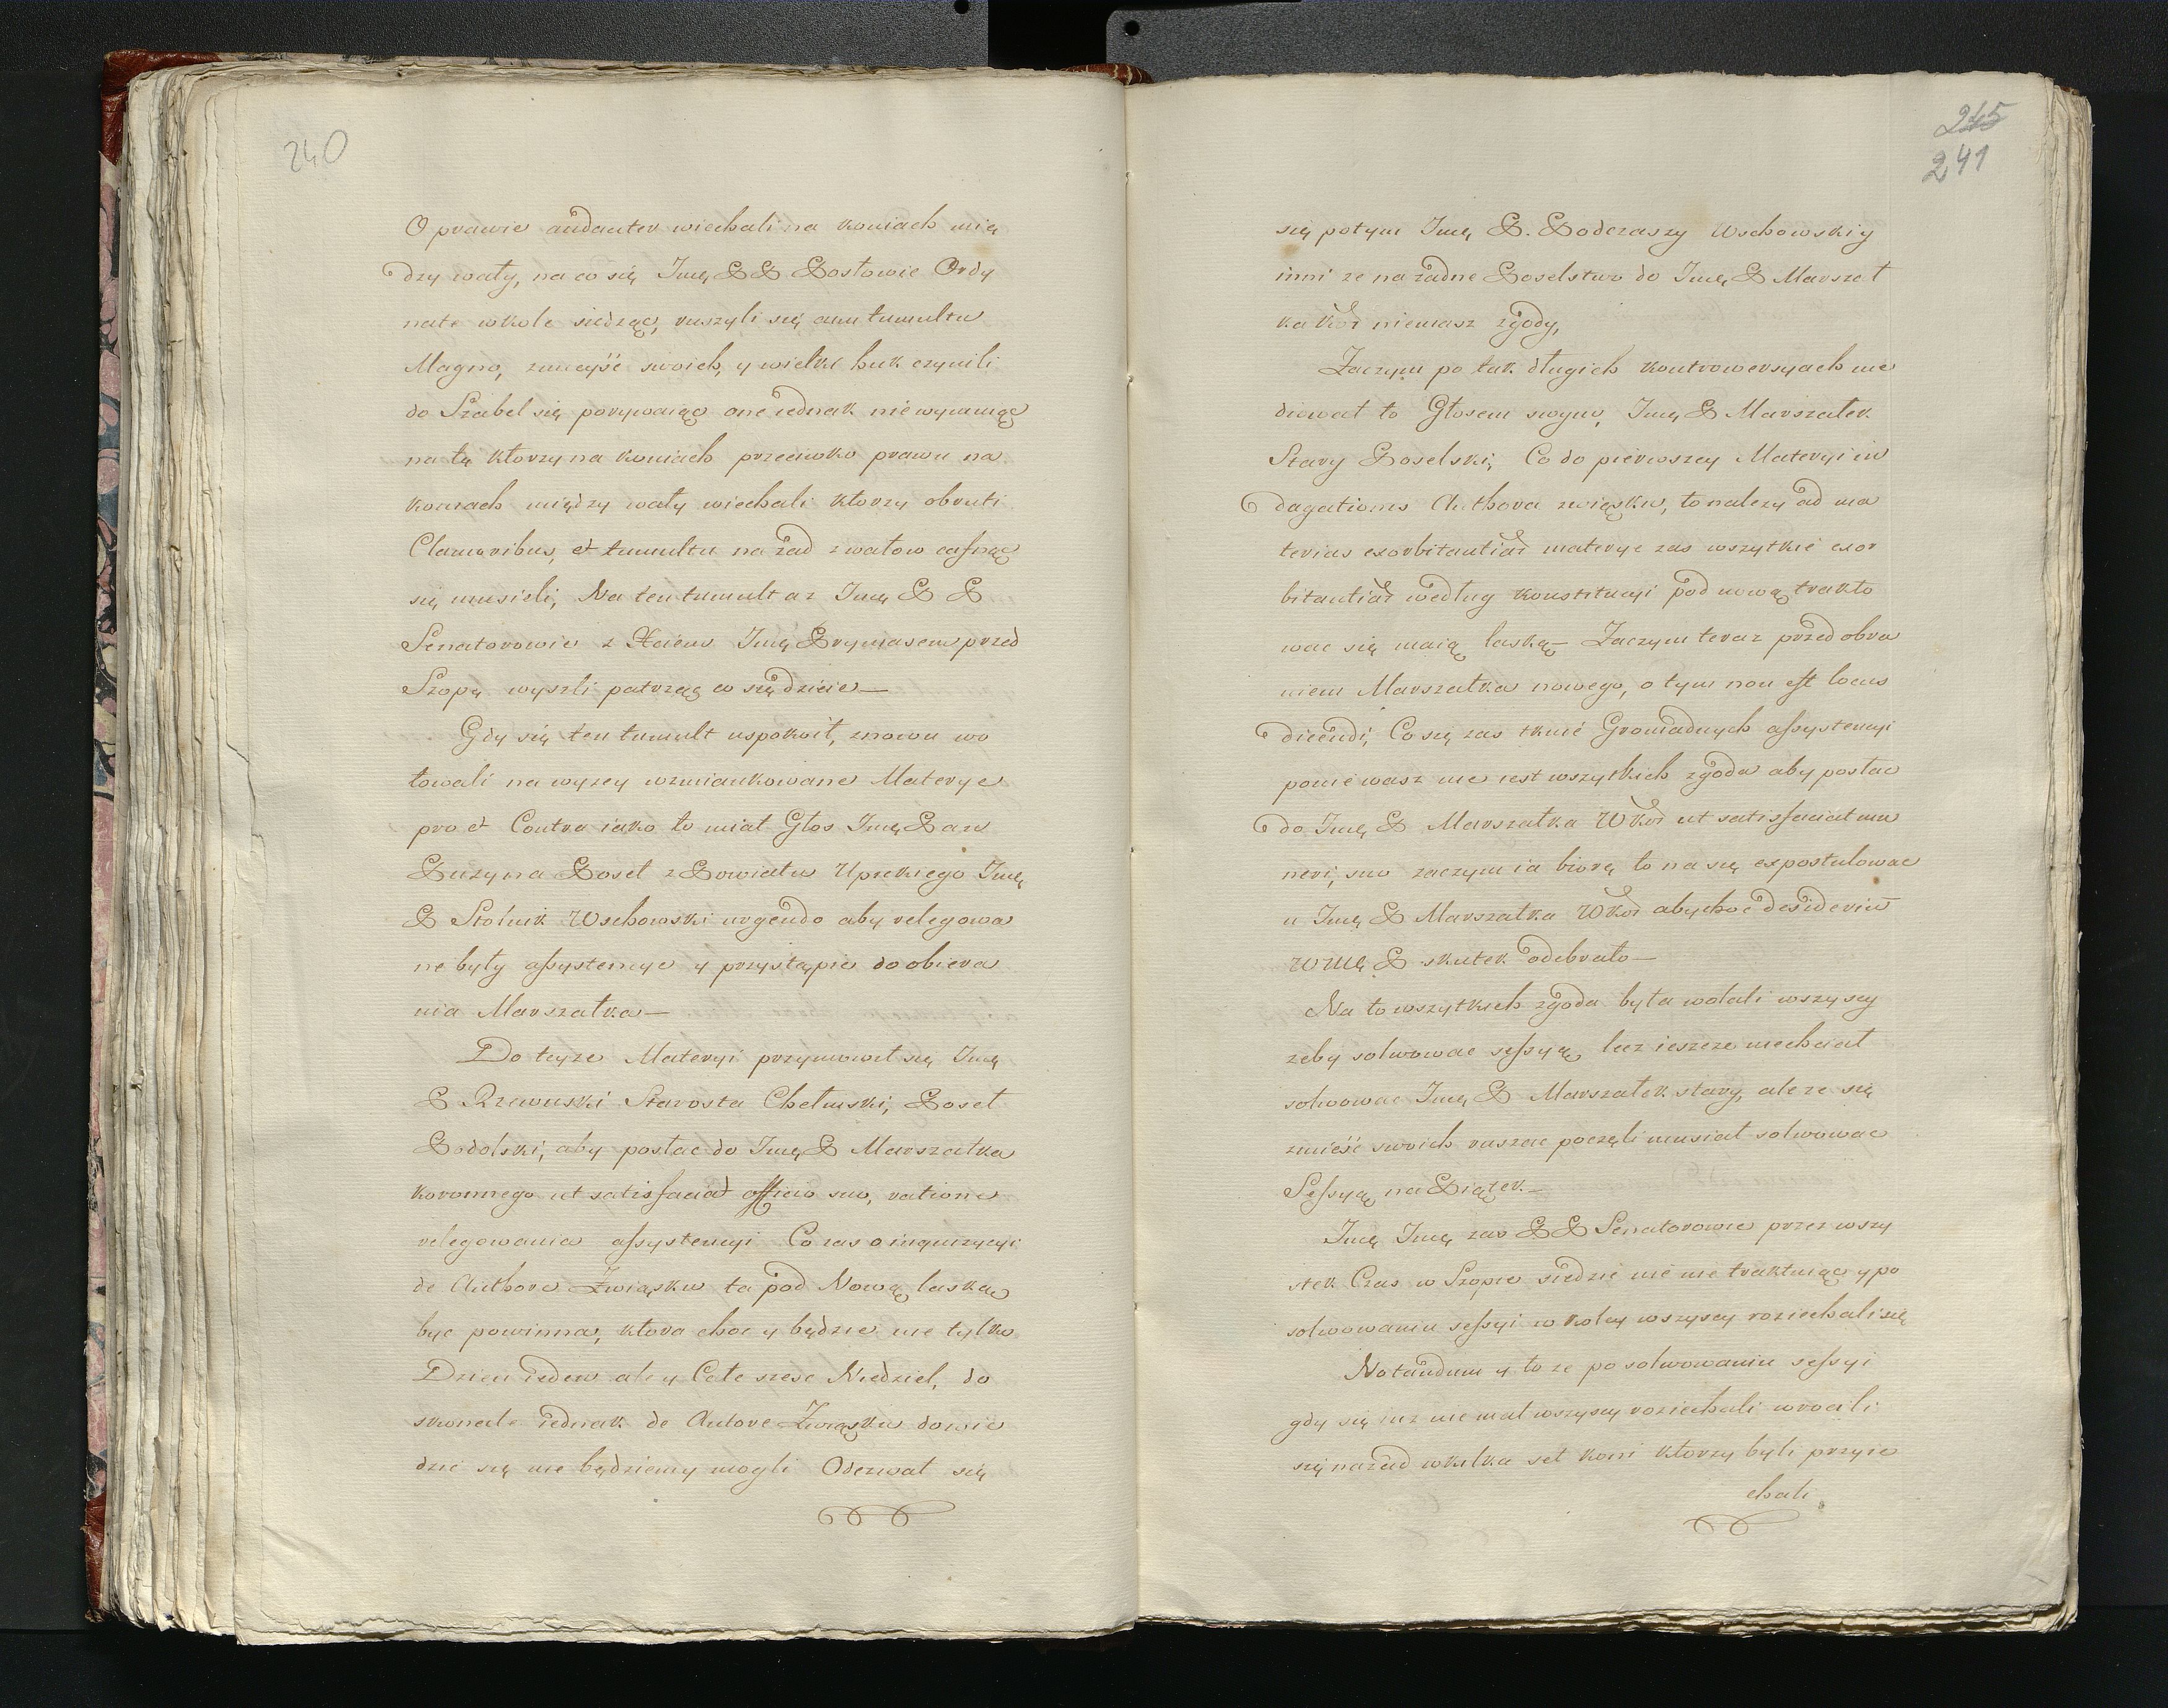 240
O prawie audacter wiechali na koniach mię
dzy wały, na co się Imę PP Posłowie Ordy
nate wkole siedząc, ruszyli się cum tumultu
Magno, zmieyść swoich, y wielki huk czynili
do Szabel się porywaiąc one iednak niewyimuąc
na tę ktorzy na koniach przeciwko prawu na
koniach między wały wiechali ktorzy obruti
Clamoribus, et tumultu na zad z wałow cofnąc
się musieli, Na ten tumult az Imę P P
Senatorowie z Xciem Imę Prymasem przed
Szopę wyszli patrząc co się dzieie—
Gdy się ten tumult uspokoił, znowu wo
towali na wyzey wzmiankowane Materye
pro et Contra iako to miał Głos Imę Pan
Puzyna Poseł z Powiatu Upickiego Imę
P Stolnik Wschowski urgendo aby relegowa
ne były assystencye y przystąpie do obiera
nia Marszałka—
Do teyze Materyi przymowił się Imę
P Rzewuski Starosta Chełmski, Poseł
Podolski, aby posłac do Imę P Marszałka
koronnego ut satisfaciat officio suo, ratione
relegowania assystencyi. Co zas o inquizycyi
de Authore Związku ta pod Nową laską
byc powinna, ktora choc y będzie nie tylko
Dzień ieden ale y Całe szesc Niedziel, do
skonale iednak de Autore Związku dowie
dzie się nie będziemy mogli Odezwał się
245
241
się potym Imę P. Podczaszy Wschowski y
inni ze na zadne Poselstwo do Imę P Marszał
ka Kor niemasz zgody,
Zaczym po tak długich kontrowersyach me
diował to Głosem swym, Imę P Marszałek
Stary Poselski, Co do pierwszey Materyi in
dagationis Authora związku, to nalezy ad ma
terias exorbitantiar materye zas wszytkie exor
bitantiar według konstitucyi pod nową trakto
wac się maią laską— Zaczym teraz przed obra
niem Marszałka nowego, o tym non est locus
dicendi, Co się zas tknie Gromadnych assystencyi
poniewasz nie iest wszytkich zgoda aby posłac
do Imę P Marszałka W Kor ut satisfaciat mu
neri, suo zaczym ia biorę to na się expostulowac
u Imę P Marszałka W Kor aby choc desideriu
W Mę P skutek odebrało—
Na to wszytkich zgoda była wołali wszyscy
zeby solwowac sessyą, lecz ieszcze niechciał
solwowac Imę P Marszałek stary, ale ze się
zmieść swoich ruszac poczęli musiał solwowac
Sessyą na Piątek—
Imę Imę zas PP Senatorowie przez wszy
stek Czas w Szopie siedzie nic nie traktuiąc y po
solwowaniu sessyi w koley wszyscy roziechali się
Notandum y to ze po solwowaniu sessyi
gdy się iuz nie mal wszyscy roziechali wrocili
się nazad w kilka set koni ktorzy byli przyie
chali